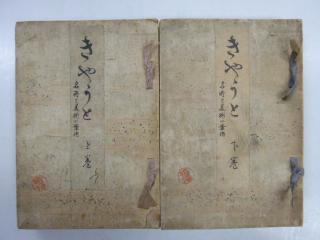 きやうと
名所と美術の案内
上巻
きやうと
名所と美術の案内
下巻